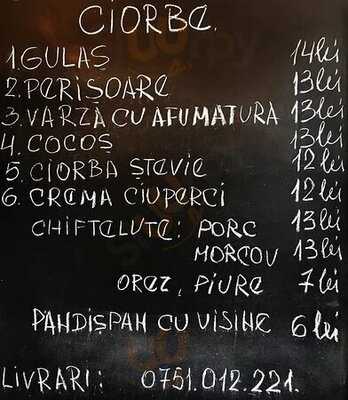 CIORBE.
1. GULAȘ 14 lei
2. PERISOARE 13 lei
3. VARZĂ CU AFUMATURA 13 lei
4. COCOȘ 13 lei
5. CIORBA ȘTEVIE 12 lei
6. CREMA CIUPERCI 12 lei
CHIFTELUTE: PORC 13 lei
MORCOV 13 lei
OREZ, PIURE 7 lei
PANDIȘPAN CU VISINE 6 lei
LIVRARI: 0751.012.221.